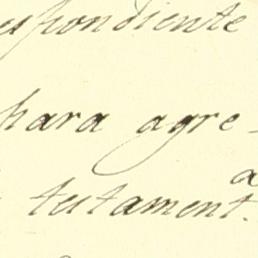 espondiente
para agre-
testament.a